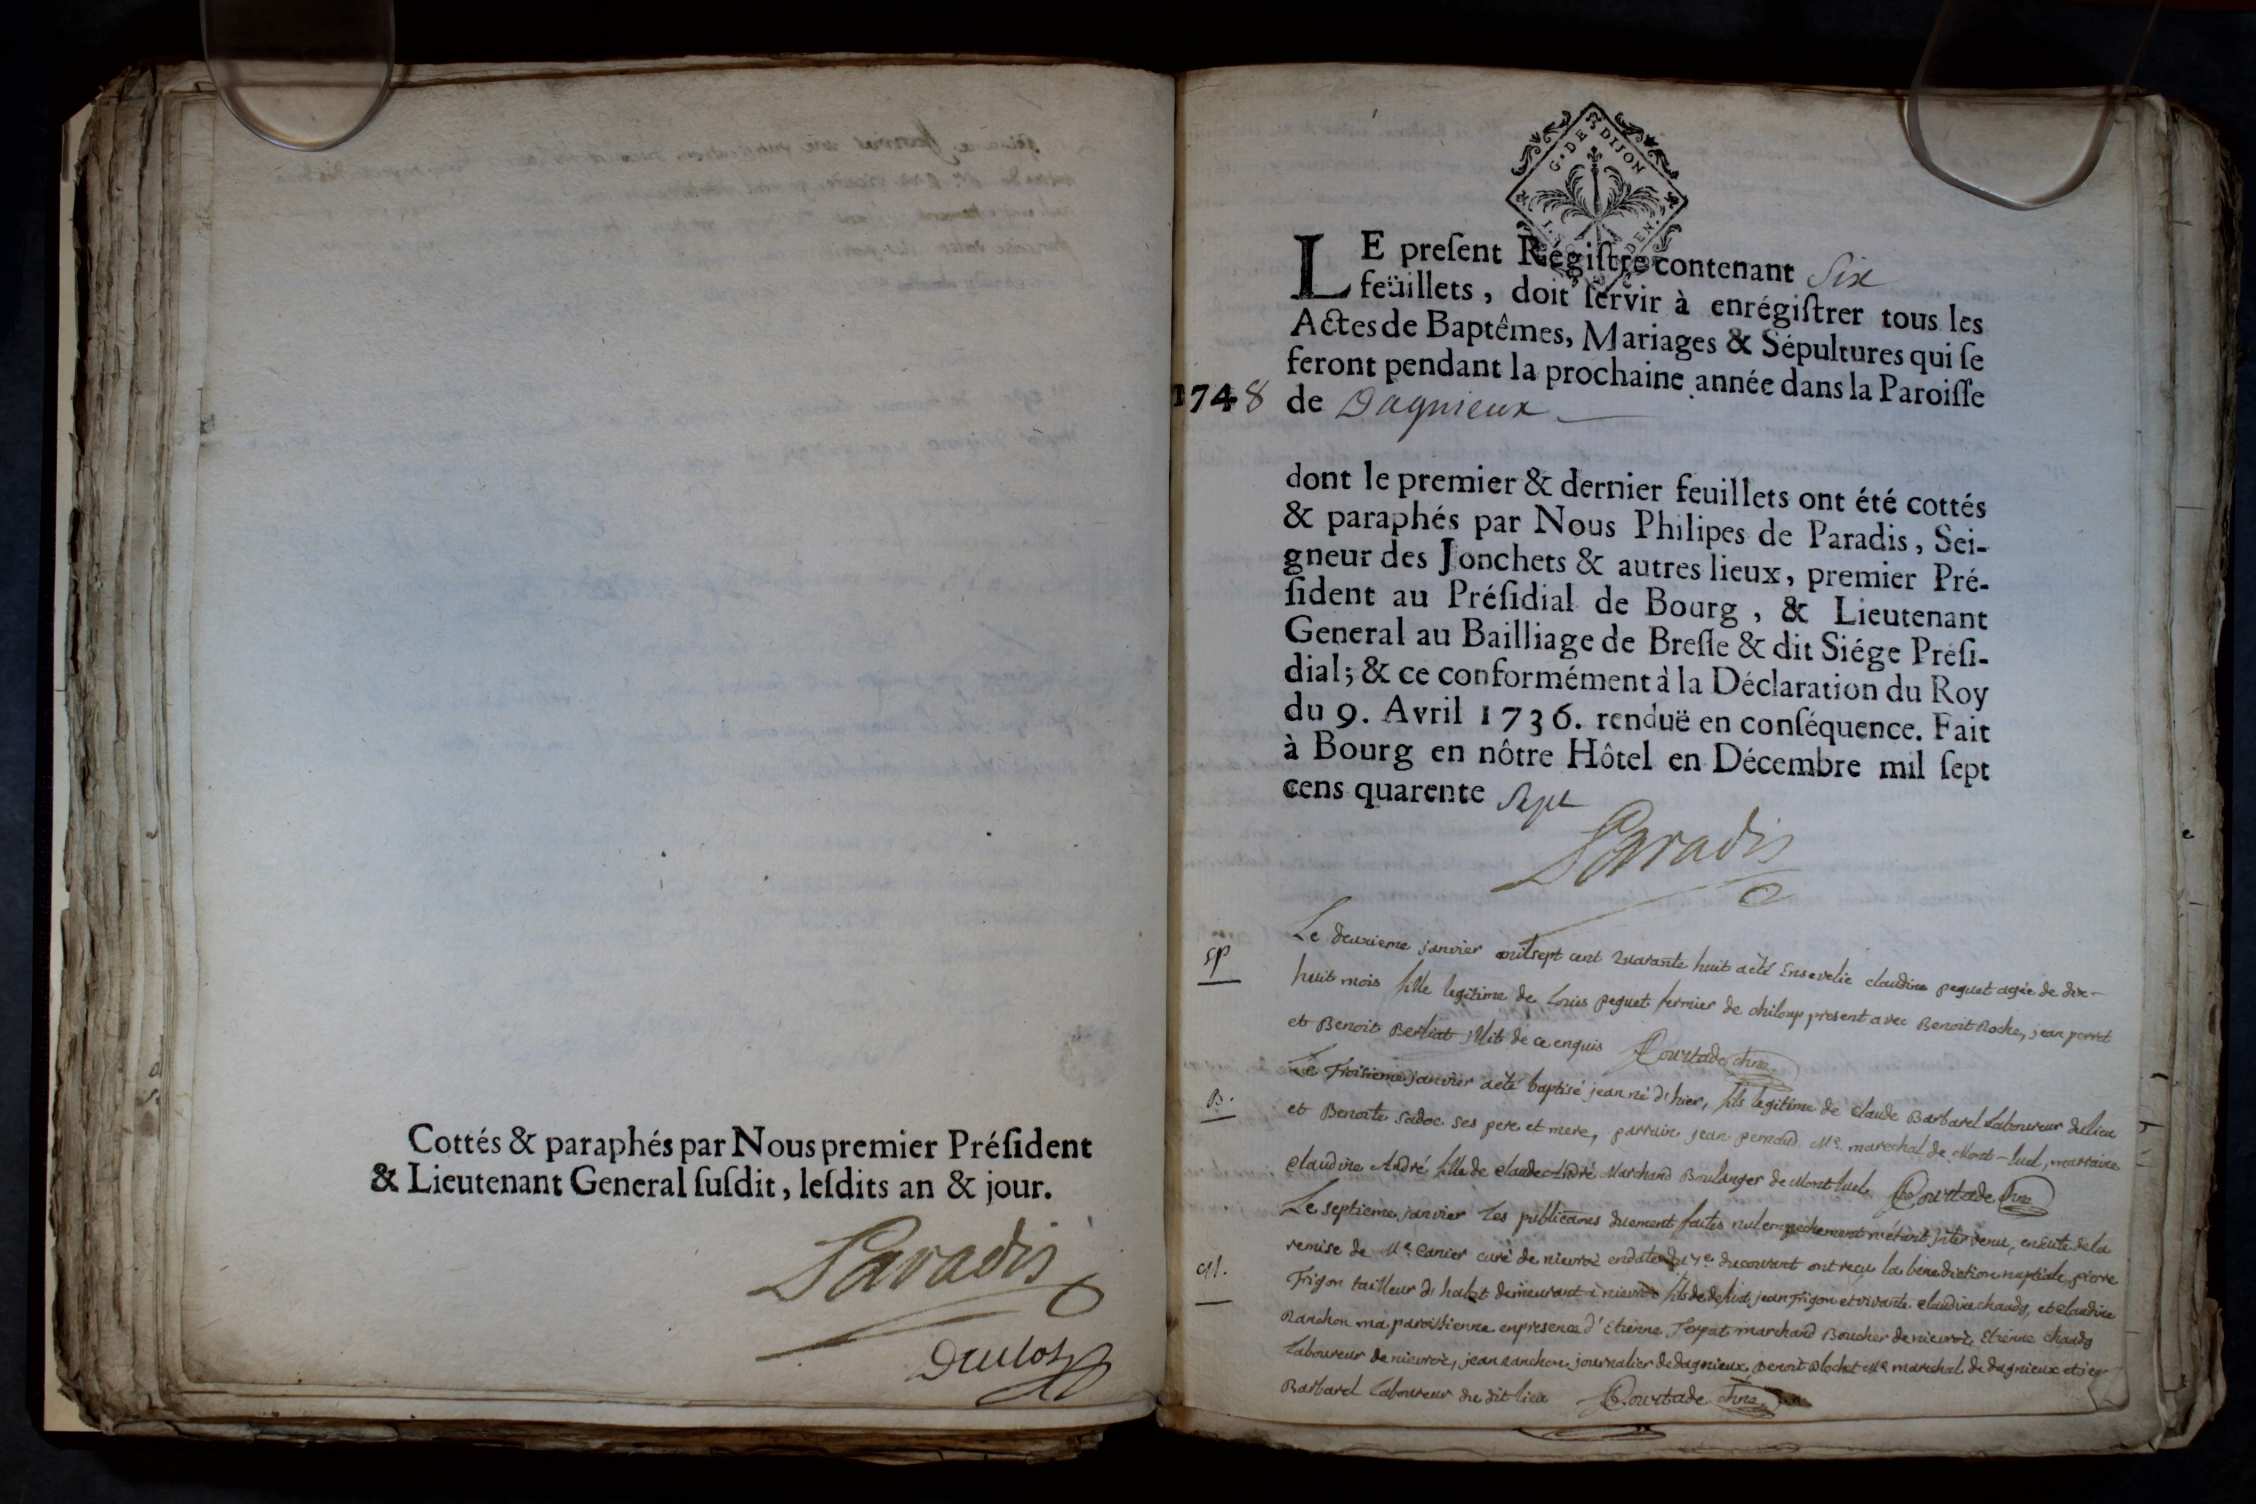 Cottés & paraphés par Nous premier Préſident
& Lieutenant General ſuſdit, leſdits an & jour.
Paradis
G. DE DIJON
LE preſent Régiſtre contenant Six
feüillets, doit ſervir à enrégiſtrer tous les
Actes de Baptêmes, Mariages & Sépultures qui ſe
feront pendant la prochaine année dans la Paroiſſe
1748 de Dagnieux
dont le premier & dernier feuillets ont été cottés
& paraphés par Nous Philipes de Paradis, Sei-
gneur des Jonchets & autres lieux, premier Pré-
ſident au Préſidial de Bourg, & Lieutenant
General au Bailliage de Breſſe & dit Siége Préſi-
dial; & ce conformément à la Déclaration du Roy
du 9. Avril 1736. renduë en conſéquence. Fait
à Bourg en nôtre Hôtel en Décembre mil ſept
cens quarente Sept
Paradis
Sp Le deuxieme janvier milsept cent Quarante huit aeté Ensevelie claudine peguet agée de dix-
huit mois fille legitime de Louis peguet fermier de chiloup present avec Benoit Roche, jean perret
et Benoit Berliat de ce enquis Courtade
B. Le Troisieme janvier aeté baptisé jean né d'hier, fils legitime de claude Barbarel Laboureur dulieu
et Benoite Sadoc ses pere et mere, parrain jean pernoud Me. marechal de Mont-luel, marraine
claudine André fille de claude André Marchand Boulanger de Montluel Courtade
M. Le septieme janvier Les publicaõns duement faites nulempechement n'étant intervenu, ensuite dela
remise de Mr. Canier curé de nievroz endate du courant ontreçu la benediction nuptiale pierre
Trigon tailleur d'habit demeurant à nievroz fils de defunt jean Trigon et vivante claudine chaady, et claudine
Ranchon ma paroissienne enpresence d'Etienne Terpat marchand Boucher de nievroz, Etienne chaady
Laboureur de nievroz, jean Ranchon journalier de dagnieux, Benoit Blochet Me marechal de dagnieux et
Barbarel Laboureur du dit lieu Courtade